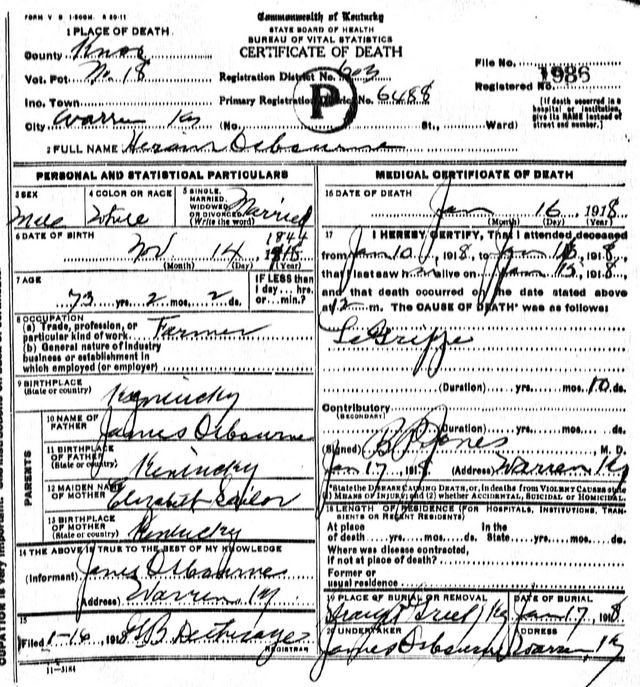 FORM V S 1-500M 8 20-11
Commonwealth of Kentucky
STATE BOARD OF HEALTH
BUREAU OF VITAL STATISTICS
CERTIFICATE OF DEATH
1 PLACE OF DEATH.
County Knox
Vot. Pct No 18
Ino. Town
City Warren Ky (No. St., Ward)
Registration District No. 603
Primary Registration District No. 6488
P
File No.
1986
Registered No.
[If death occurred in a
hospital or institution,
give its NAME instead of
street and number.]
2 FULL NAME Hiram Osbourne
PERSONAL AND STATISTICAL PARTICULARS
3 SEX Male
4 COLOR OR RACE White
5 SINGLE, MARRIED, WIDOWED, OR DIVORCED (Write the word) Married
6 DATE OF BIRTH Nov 14 1844
(Month) (Day) (Year)
7 AGE
73 yrs. 2 mos. 2 ds.
IF LESS than
1 day... hrs.
or... min.?
8 OCCUPATION
(a) Trade, profession, or
particular kind of work Farmer
(b) General nature of industry
business or establishment in
which employed (or employer)
9 BIRTHPLACE
(State or country) Kentucky
PARENTS
10 NAME OF
FATHER James Osbourne
11 BIRTHPLACE
OF FATHER
(State or country) Kentucky
12 MAIDEN NAME
OF MOTHER Elizabeth Sailor
13 BIRTHPLACE
OF MOTHER
(State or country) Kentucky
14 THE ABOVE IS TRUE TO THE BEST OF MY KNOWLEDGE
(Informant) James Osbourne
(Address) Warren, Ky.
15
Filed 1-16, 1918
REGISTRAR
11-3184
MEDICAL CERTIFICATE OF DEATH
16 DATE OF DEATH
Jan 16 1918
(Month) (Day) (Year)
17 I HEREBY CERTIFY, That I attended deceased
from Jan 10, 1918, to Jan 1918,
that I last saw h alive on Jan 15, 1918,
and that death occurred on the date stated above
at 12 m. The CAUSE OF DEATH* was as follows:
La Grippe
(Duration) yrs. mos. 10 ds.
Contributory
(SECONDARY)
(Duration) yrs. mos. ds.
(Signed) B P Jones, M. D.
Jan 17, 1918 (Address) Warren Ky
*State the DISEASE CAUSING DEATH, or, in deaths from VIOLENT CAUSES state
(1) MEANS OF INJURY; and (2) whether ACCIDENTAL, SUICIDAL or HOMICIDAL.
18 LENGTH OF RESIDENCE (FOR HOSPITALS, INSTITUTIONS, TRANSIENTS OR RECENT RESIDENTS)
At place
of death yrs. mos. ds.
In the
State yrs. mos. ds.
Where was disease contracted,
if not at place of death?
Former or
usual residence
19 PLACE OF BURIAL OR REMOVAL
Creek Ky
DATE OF BURIAL
Jan 17, 1918
20 UNDERTAKER
James Osbourne
ADDRESS
Warren, Ky